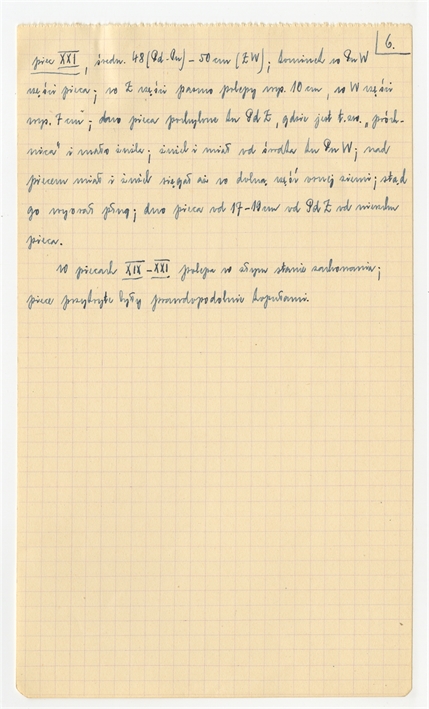 6.
piec XXI, średn. 48 (Pd-Pn) – 50 cm (ZW); kominek w PnW
części pieca; w Z części pasmo polepy wys. 10 cm, w W części
wys. 7 cm; dno pieca pochylone ku PdZ, gdzie jest t.zw. „próch-
nica" i mało żużla; żużel i miał od środka ku PnW; nad
piecem miał i żużel sięgał aż w dolną część ornej ziemi; stąd
go wyorał pług; dno pieca od 17–19 cm od PdZ od
pieca.
W piecach XIX–XXI polepa w złym stanie zachowania;
piece przykryte były prawdopodobnie kopułami.